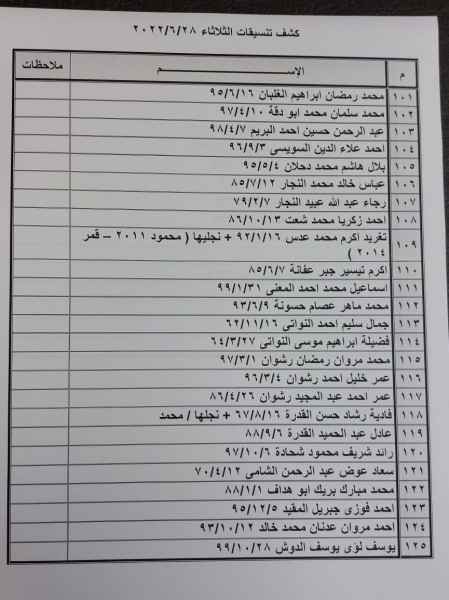 كشف تنسيقات الثلاثاء ٢٠٢٢/٦/٢٨
م الإســـــم ملاحظات
١٠١ محمد رمضان ابراهيم الغلبان ٩٥/٦/١٦
١٠٢ محمد سلمان محمد ابو دقة ٩٧/٤/١٠
١٠٣ عبد الرحمن حسين احمد البريم ٩٨/٤/٧
١٠٤ احمد علاء الدين السويسى ٩٦/٩/٣
١٠٥ بلال هاشم محمد دحلان ٩٥/٥/٤
١٠٦ عباس خالد محمد النجار ٨٥/٧/١٢
١٠٧ رجاء عبد الله عبيد النجار ٧٩/٢/٧
١٠٨ احمد زكريا محمد شعت ٨٦/١٠/١٣
١٠٩ تغريد اكرم محمد عدس ٩٢/١/١٦ + نجليها ( محمود ٢٠١١ – قمر
٢٠١٤ )
١١٠ اكرم تيسير جبر عفانة ٨٥/٦/٧
١١١ اسماعيل محمد احمد المغنى ٩٩/١/٣١
١١٢ محمد ماهر عصام حسونة ٩٣/٦/٩
١١٣ جمال سليم احمد النواتى ٦٢/١١/١٦
١١٤ فضيلة ابراهيم موسى النواتى ٦٤/٣/٢٧
١١٥ محمد مروان رمضان رشوان ٩٧/٣/١
١١٦ عمر خليل احمد رشوان ٩٦/٣/٤
١١٧ عمر احمد عبد المجيد رشوان ٨٦/٤/٢٦
١١٨ فادية رشاد حسن القدرة ٦٧/٨/١٦ + نجلها / محمد
١١٩ عادل عبد الحميد القدرة ٨٨/٩/٦
١٢٠ رائد شريف محمود شحادة ٩٧/١٠/٦
١٢١ سعاد عوض عبد الرحمن الشامى ٧٠/٤/١٢
١٢٢ محمد مبارك بريك ابو هداف ٨٨/١/١
١٢٣ احمد فوزى جبريل المقيد ٩٥/١٢/٥
١٢٤ احمد مروان عدنان محمد خالد ٩٣/١٠/١٢
١٢٥ يوسف لؤى يوسف الدوش ٩٩/١٠/٢٨